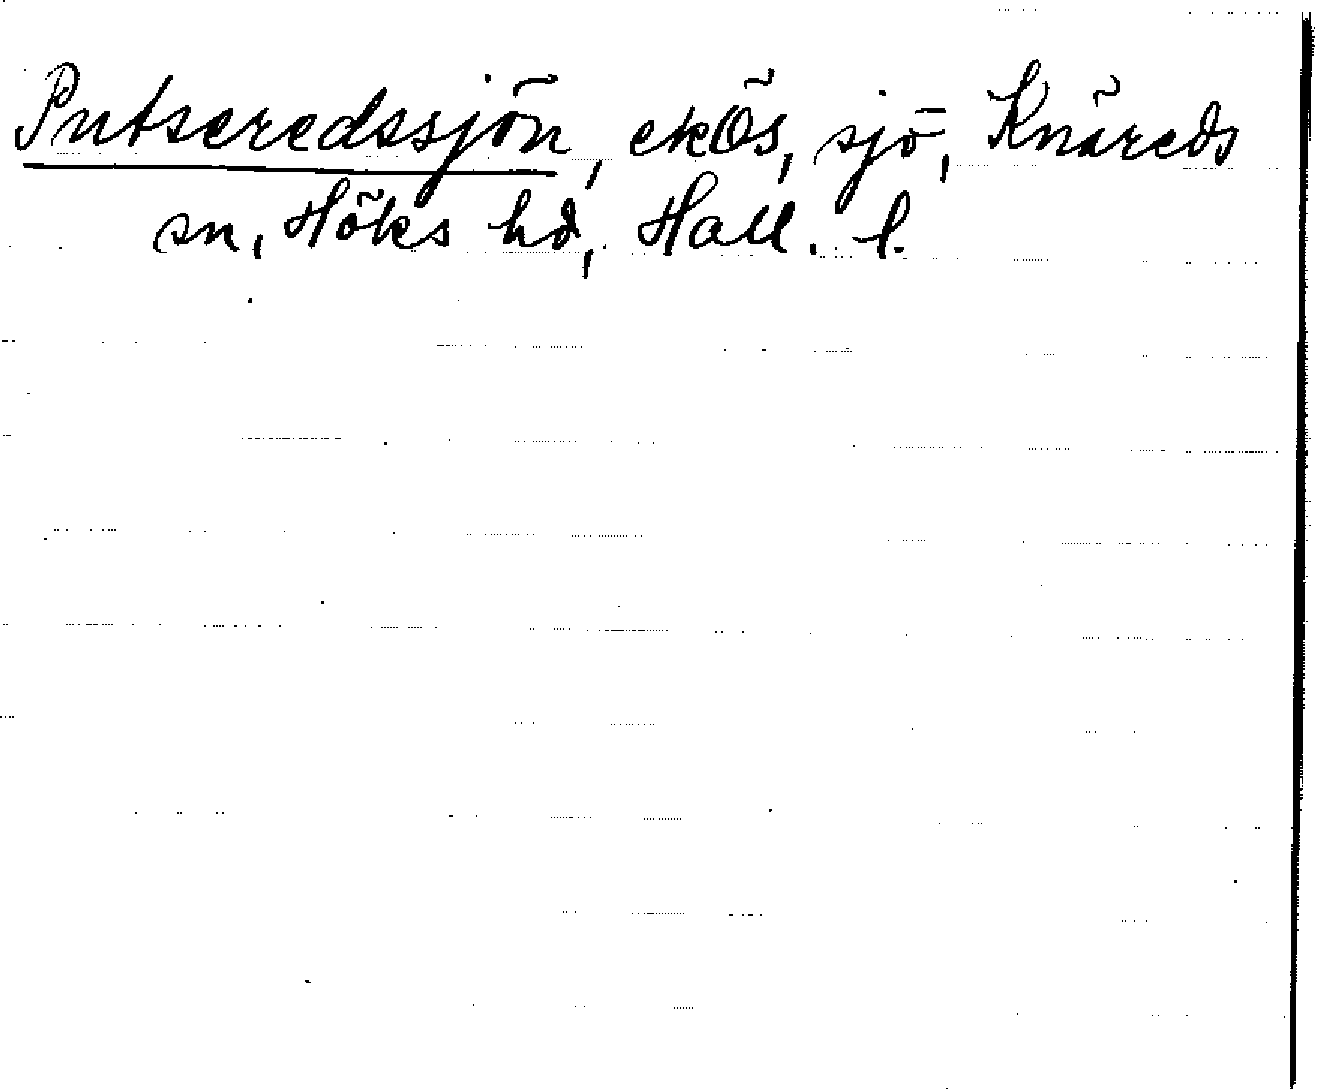 Putseredssjön, ekÖs, sjö, Knäreds
sn, Höks hd, Hall. l.